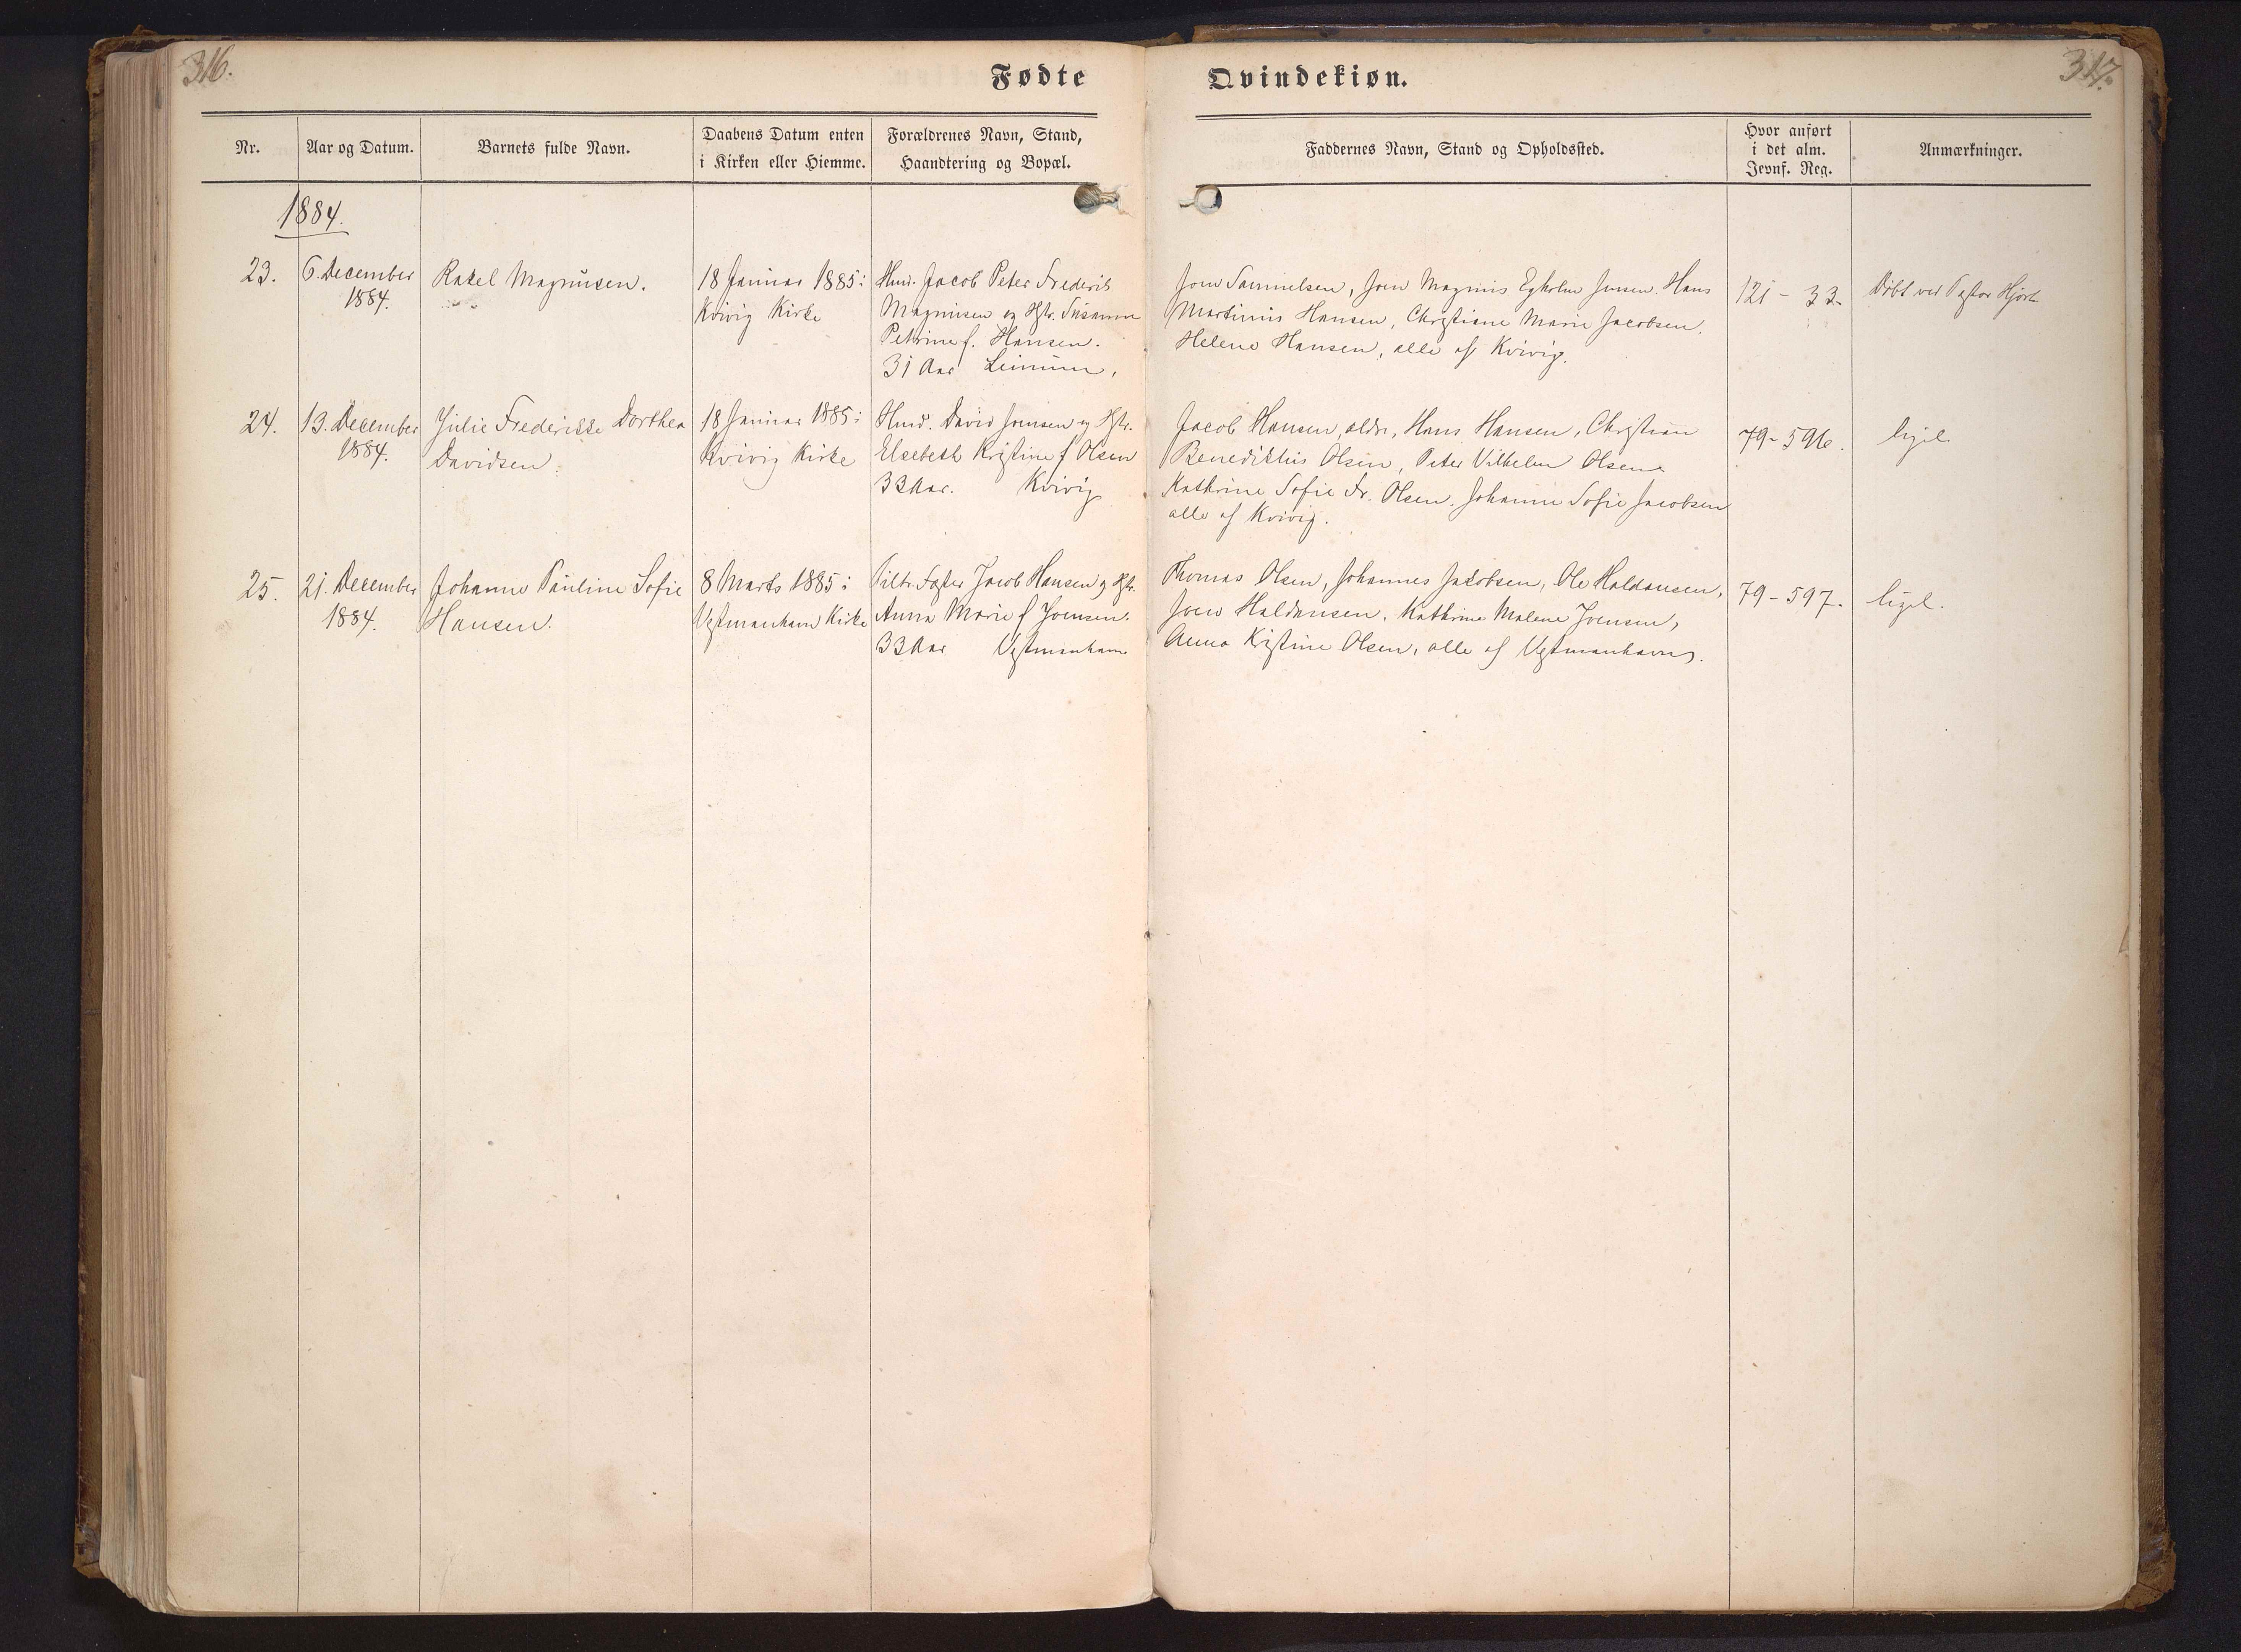 316.
Fødte
Nr.
Aar og Datum.
Barnets fulde Navn.
Daabens Datum enten
i Kirken eller Hiemme.
Forældrenes Navn, Stand,
Haandtering og Bopæl.
1884.
23.
6. December
1884.
Rakel Magnusen.
18 Januar 1885 i
Kvivig Kirke
Hmd. Jacob Peter Frederik
Magnusen og Hstr. Susanne
Petrine f. Hansen.
31 Aar Leinum,
24.
13. December
1884.
Julie Frederikke Dorthea
Davidsen.
18 Januar 1885 i
Kvivig Kirke
Hmd. David Joensen og Hstr.
Elsebeth Kristine f Olsen
33 Aar. Kvivig
25.
21. December
1884.
Johanne Pauline Sofie
Hansen.
8 Marts 1885 i
Vestmanhavn Kirke
Fæster Jacob Hansen og Hstr.
Anna Marie f Joensen.
33 Aar Vestmanhavn.
317.
Qvindekiøn.
Faddernes Navn, Stand og Opholdssted.
Hvor anført
i det alm.
Jevnf. Reg.
Anmærkninger.
Joen Samuelsen, Joen Magnus Egholm Jensen. Hans
Martinus Hansen, Christiane Marie Jacobsen.
Helene Hansen, alle af Kvivig.
121 - 33.
Døbt ved Pastor Hjort
Jacob Hansen, ældr, Hans Hansen, Christian
Benediktus Olsen, Peter Vilhelm Olsen
Kathrine Sofie Fr. Olsen. Johanne Sofie Jacobsen
alle af Kvivig.
79 - 596.
ligel.
Thomas Olsen, Johannes Jacobsen, Ole Haldansen,
Joen Haldansen. Kathrine Malene Joensen,
Anna Kristine Olsen, alle af Vestmanhavn.
79 - 597.
ligel.